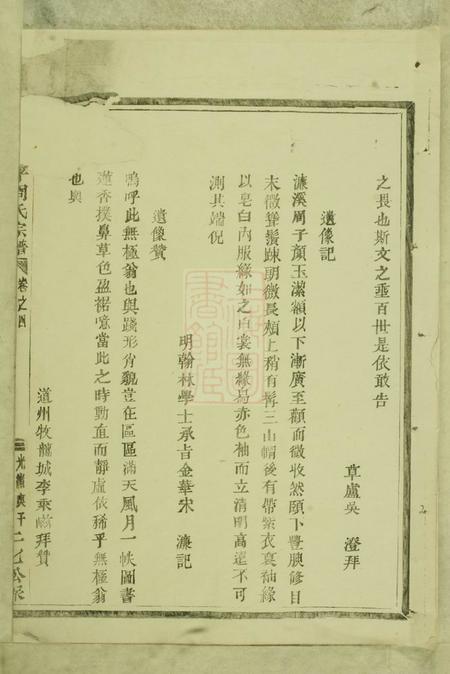 之長也斯文之垂百世是依敢告
草廬吳　澄拜
遺像記
濂溪周子顏玉潔額以下漸廣至顴而微收然頤下豐腴修目
末微聳鬚疎朗微長頰上稍有髯三山帽後有帶紫衣褒袖緣
以皂白內服緣如之白裳無緣舄赤色袖而立清明高遠不可
測其端倪
明翰林學士承旨金華宋　濂記
遺像贊
嗚呼此無極翁也與踐形肖貌豈在區區滿天風月一帙圖書
蓮香撲鼻草色盈裾噫當此之時動直而靜虛依稀乎無極翁
也與
道州牧龍城李乘 拜贊
平周氏宗譜
卷之四
光 公房